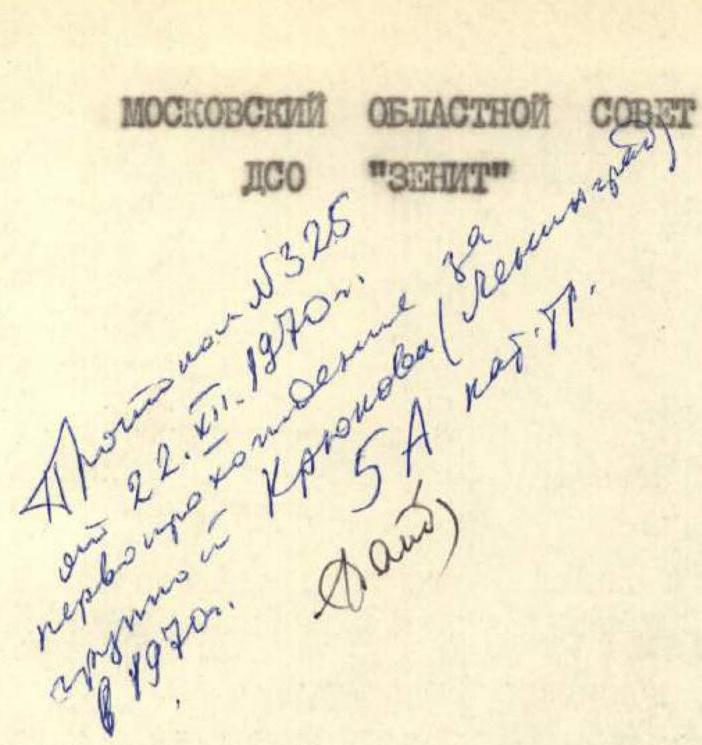 МОСКОВСКИЙ ОБЛАСТНОЙ СОВЕТ
ДСО "ЗЕНИТ"
Протокол N325
от 22.XII.1970г.
первопрохождение за
группой Крюкова (Ленинград)
в 1970г. 5А кат. тр.